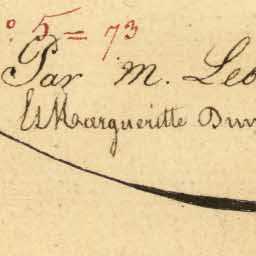 ° 5 = 73
Par M. Leo
Et Margueritte Dun